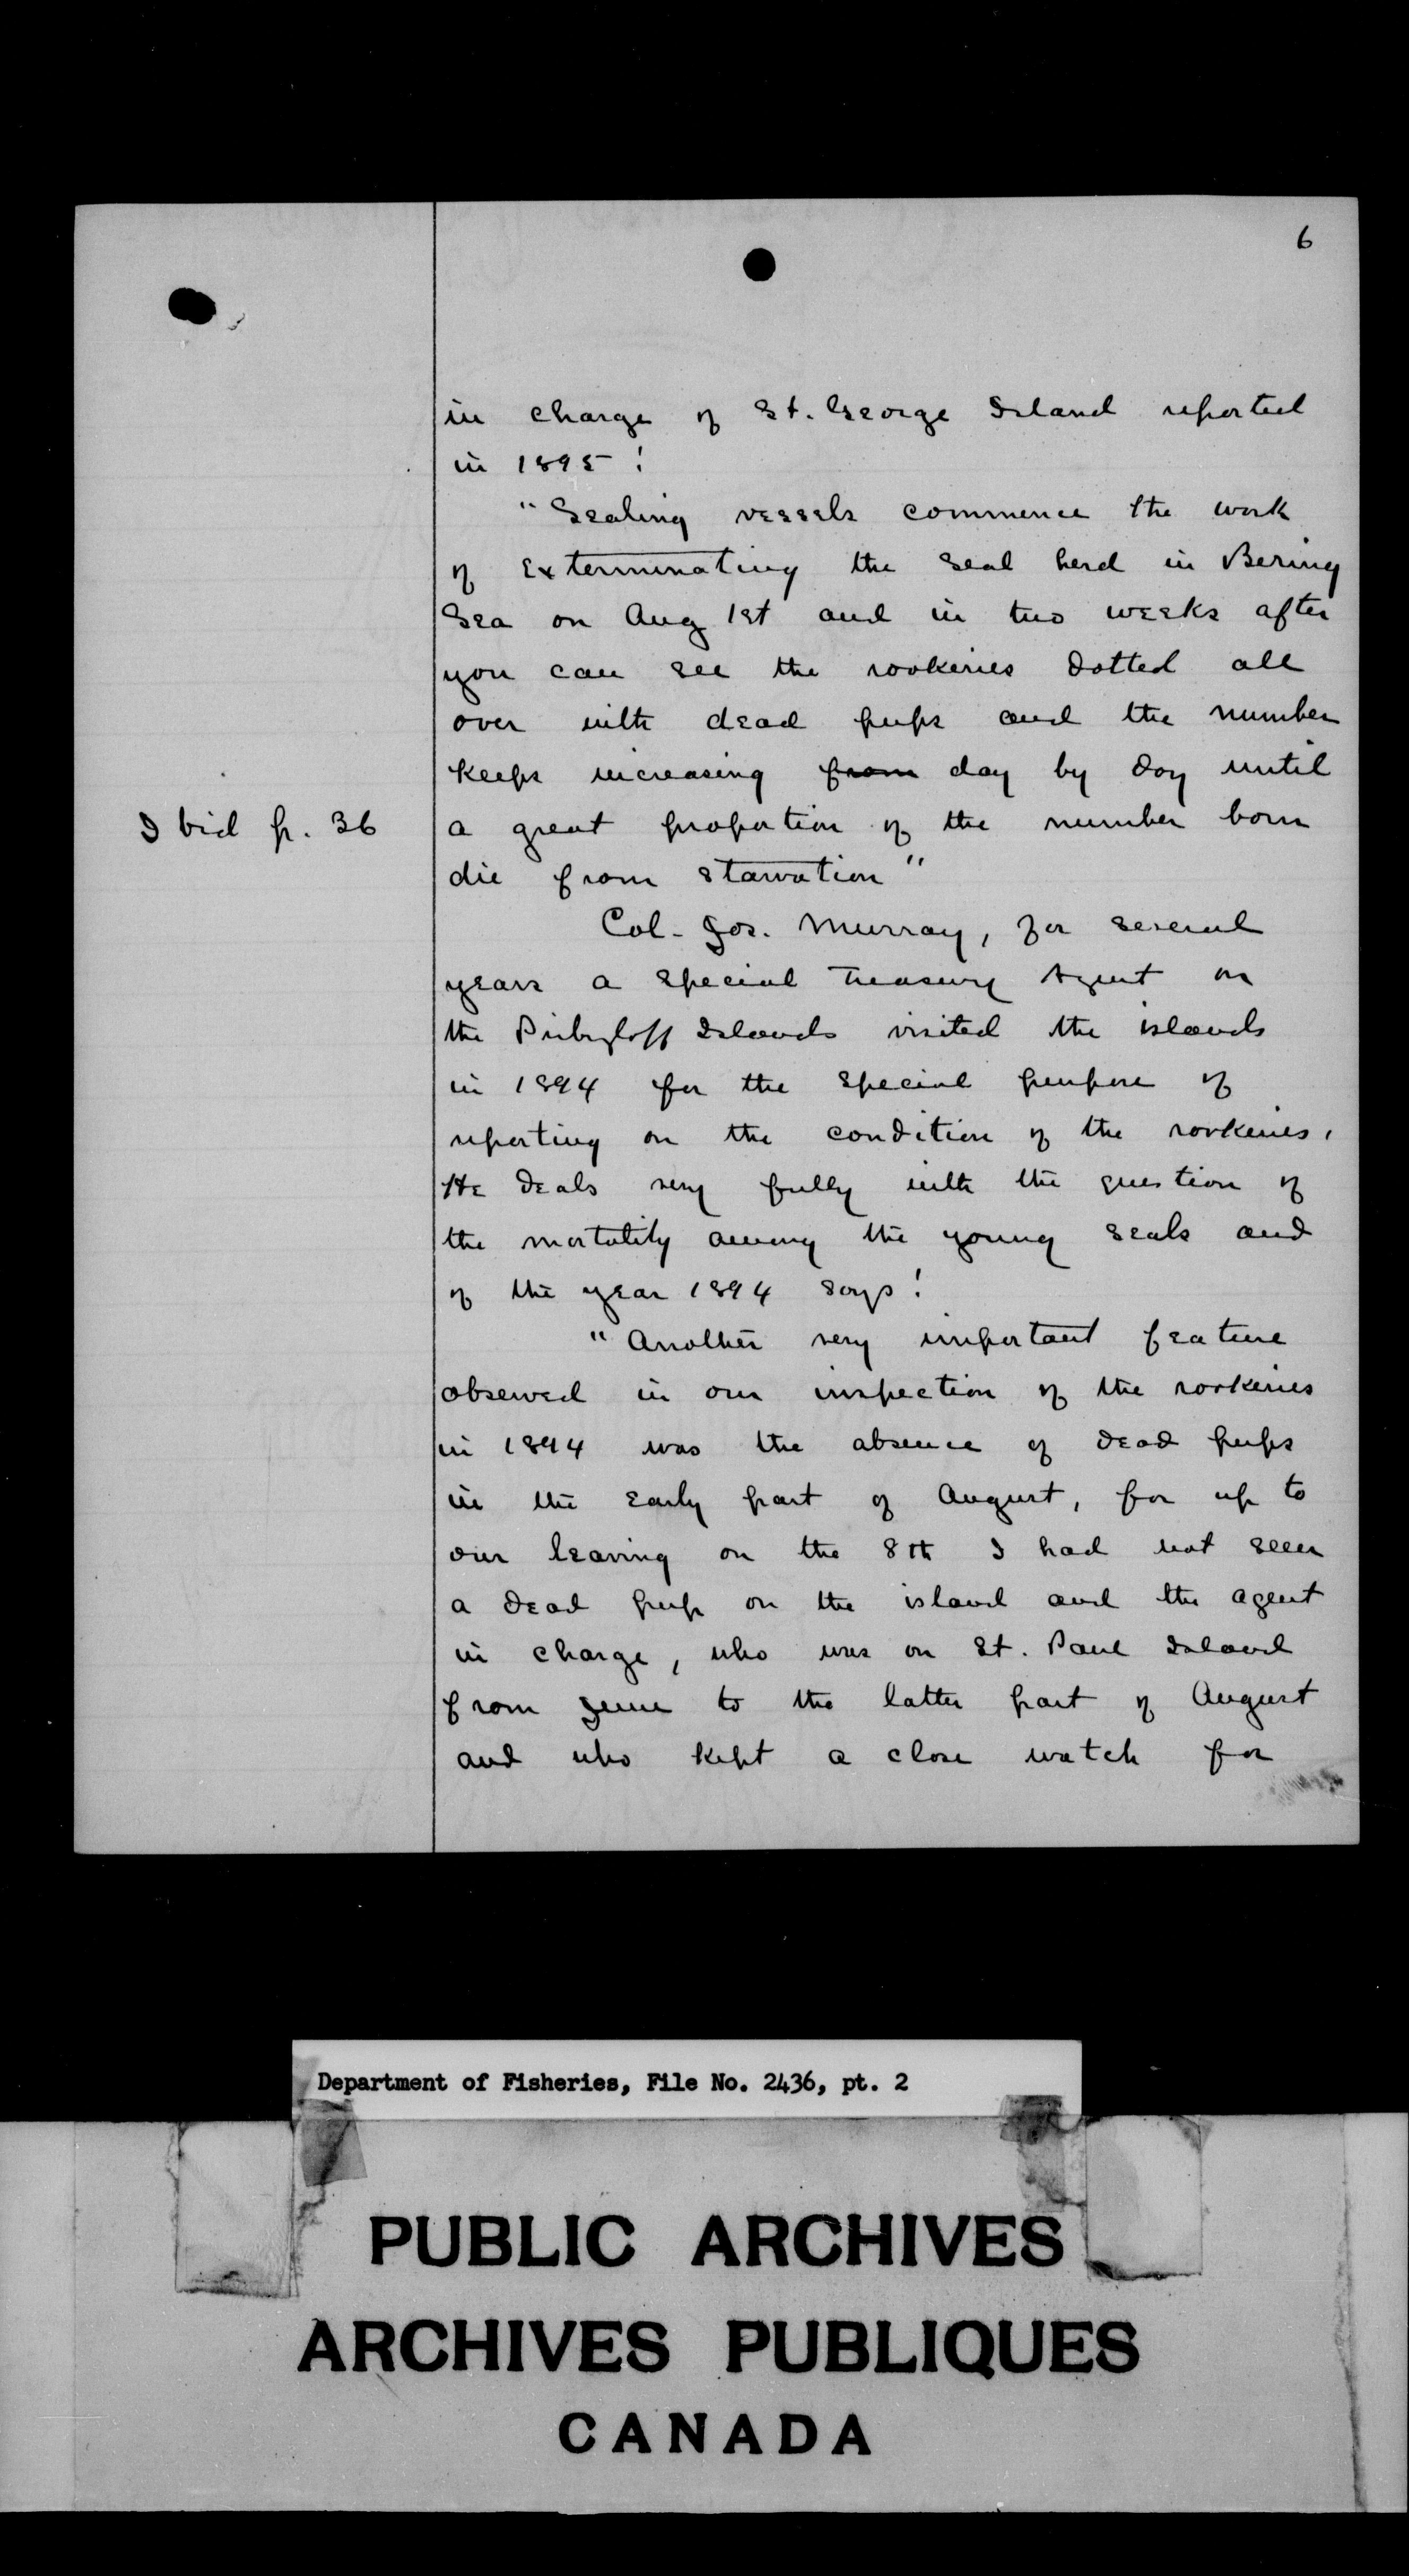 6
in charge of St. George Island reported
in 1895:
"Sealing vessels commence the work
of exterminating the seal herd in Bering
Sea on Aug 1st and in two weeks after
you can see the rookeries dotted all
over with dead pups and the number
keeps increasing from day by day until
Ibid p. 36
a great proportion of the number born
die from starvation"
Col. Jos. Murray, for several
years a special Treasury Agent on
the Pribyloff Islands visited the islands
in 1894 for the special purpose of
reporting on the condition of the rookeries.
He deals very fully with the question of
the mortality among the young seals and
of the year 1894 says:
"Another very important feature
observed in our inspection of the rookeries
in 1894 was the absence of dead pups
in the early part of August, for up to
our leaving on the 8th I had not seen
a dead pup on the island and the agent
in charge, who was on St. Paul Island
from June to the latter part of August
and who kept a close watch for
Department of Fisheries, File No. 2436, pt. 2
PUBLIC ARCHIVES
ARCHIVES PUBLIQUES
CANADA